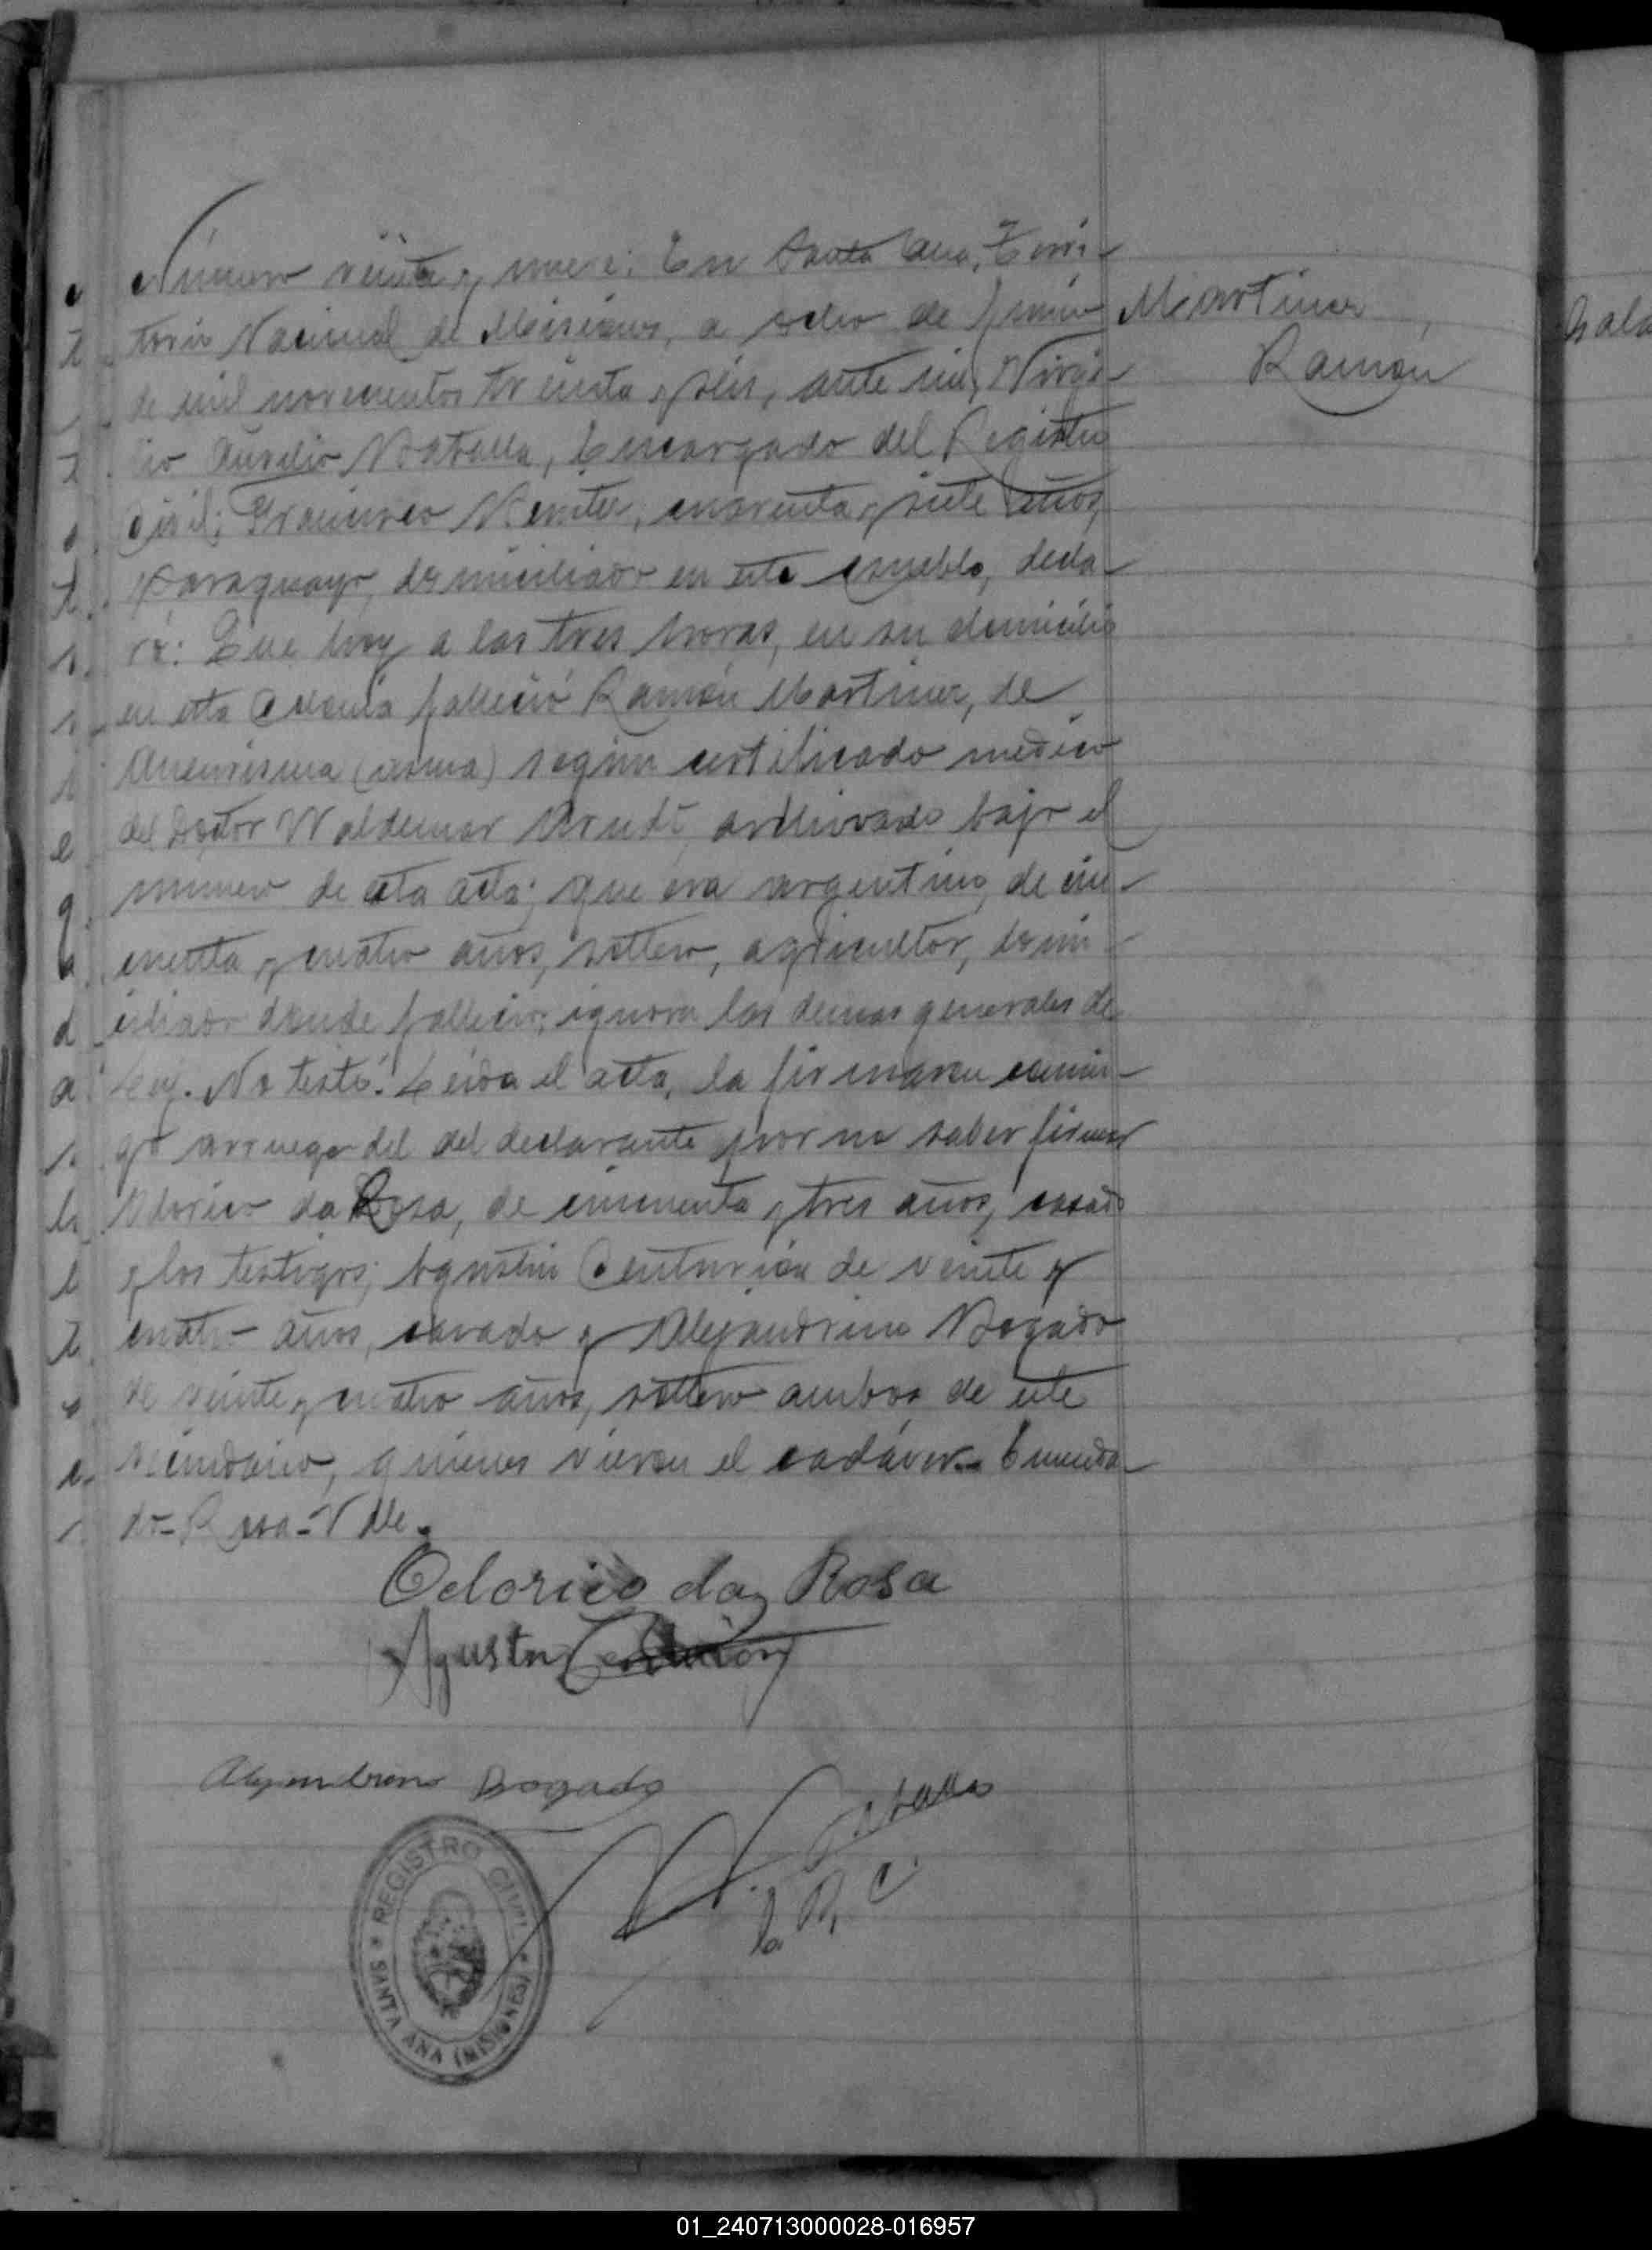 Número veinte y nueve: En Santa Ana, Terri-
torio Nacional de Misiones, a ocho de Junio
de mil novecientos treinta y seis, ante mi, Virgi-
lio Aurelio Batalla, Encargado del Registro
Civil; Francisco Benitez, cuarenta y siete años,
paraguayo, domiciliado en este pueblo, decla-
ró: Que hoy a las tres horas, en su domicilio
en esta Colonia falleció Ramón Martinez, de
Aneurisma (asma) según certificado medico
del Doctor Waldemar Arndt, archivado bajo el
numero de esta acta; que era argentino, de cin-
cuenta y cuatro años, soltero, agricultor, domi-
ciliado donde falleció; ignora las demas generales de
Ley. No testó. Leida el acta, la firmaron conmi-
go arruego del del declarante por no saber firmar
Odorico da Rosa, de cincuenta y tres años, casado
y los testigos; Agustin Centurión de veinte y
cuatro años, casado y Alejandrino Bogado
de veinte y cuatro años, soltero ambos de este
vecindario, quienes vieron el cadáver.- Enmenda-
do-Rosa-Vale.
Martinez
Ramón
Odorico da Rosa
Agustin Centurion
Alejandrino Bogado
V. Batalla
E. R. C.
REGISTRO CIVIL
SANTA ANA (MISIONES)
01_240713000028-016957